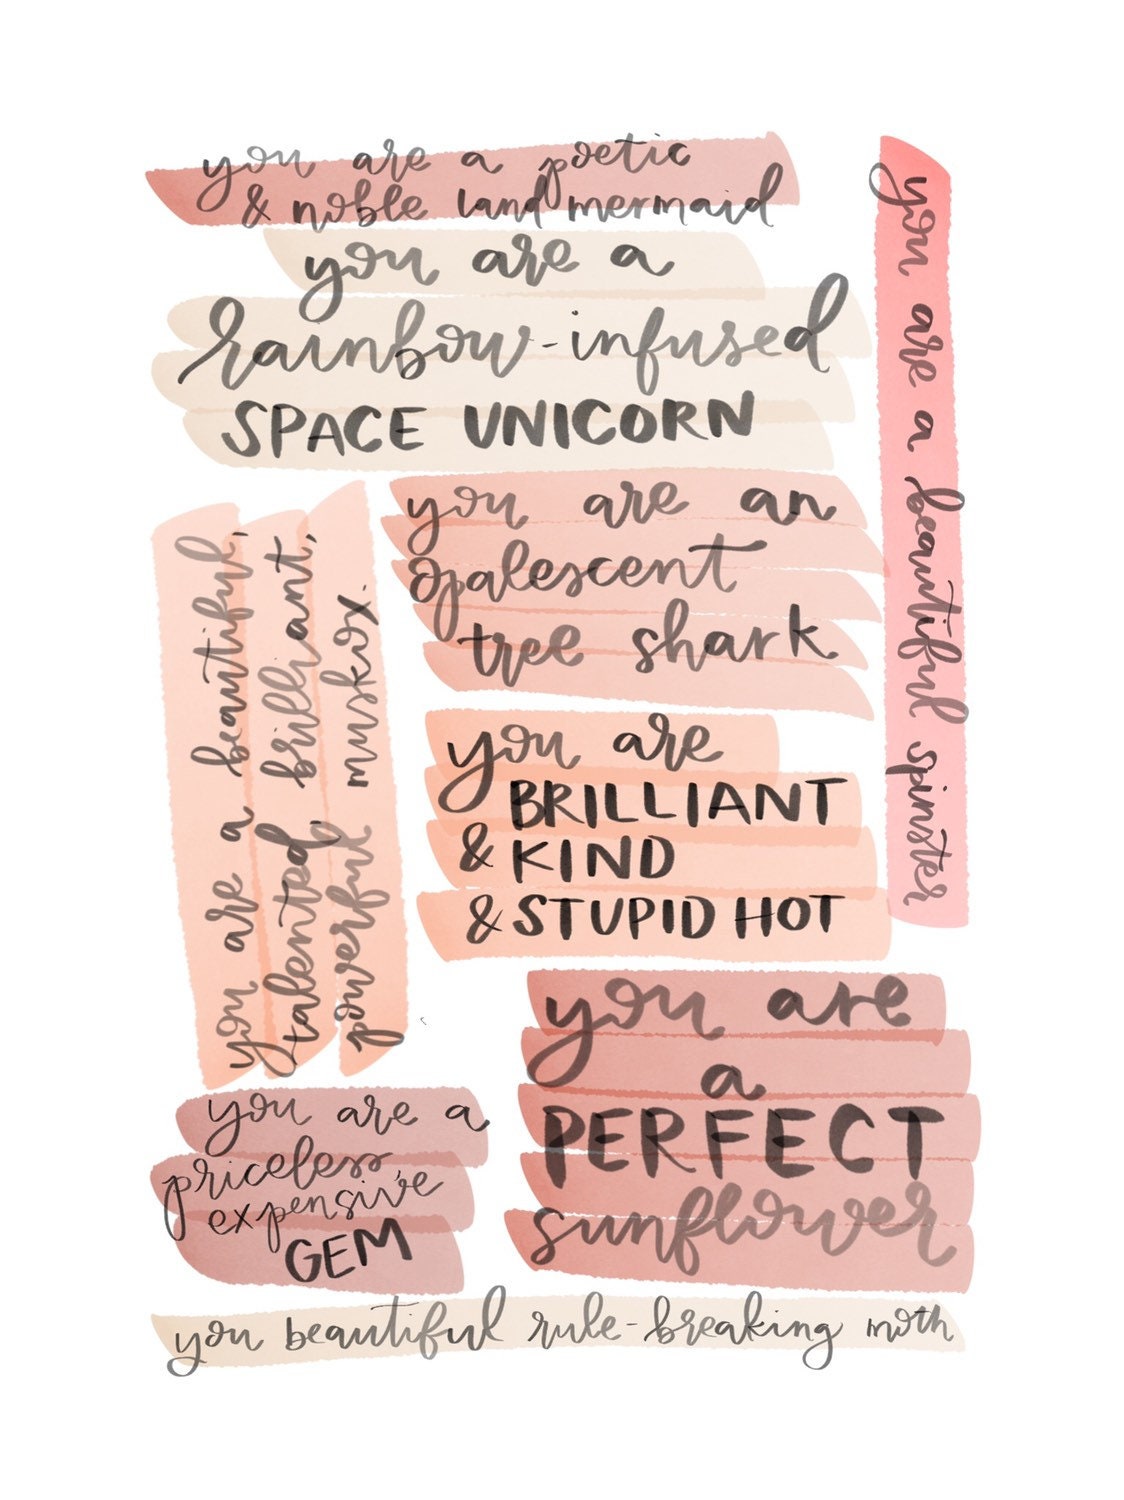 you are a poetic
& noble land mermaid
you are a
rainbow-infused
SPACE UNICORN
you are a beautiful spinster
you are an
opalescent
tree shark
you are a beautiful,
talented, brilliant,
powerful muskox.
you are
BRILLIANT
& KIND
& STUPID HOT
you are
a
PERFECT
sunflower
you are a
priceless,
expensive
GEM
you beautiful rule-breaking moth